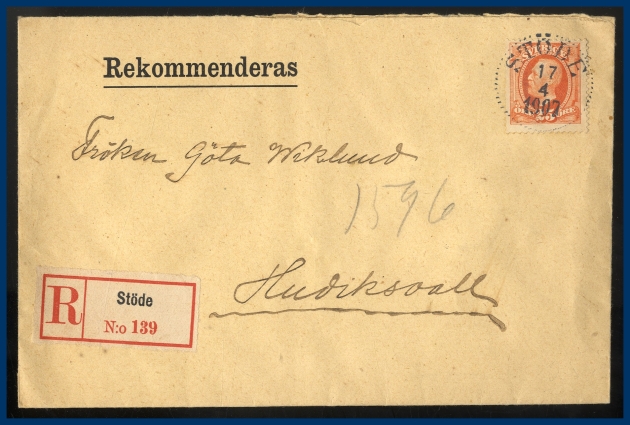 Rekommenderas
STÖDE
17
4
1907
Fröken Göta Wiklund
1546
Hudiksvall
R
Stöde
N:o 139